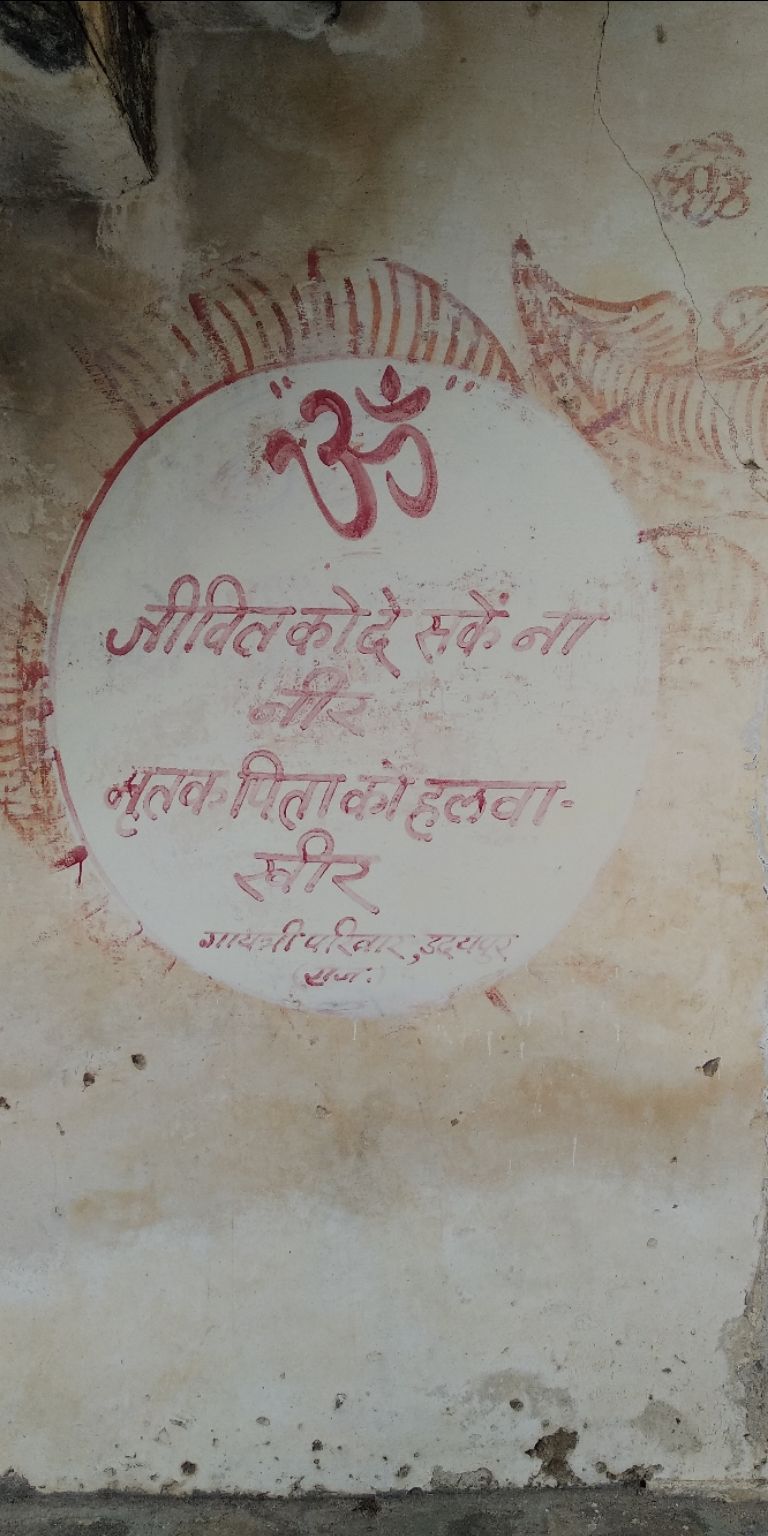 "ॐ"
जीवित को दे सकें ना
नीर
मृतक पिता को हलवा-
खीर
गायत्री परिवार, उदयपुर
(राज.)